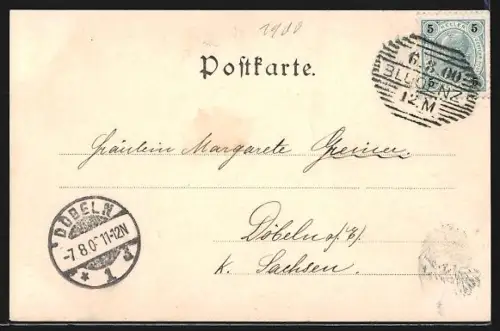 1900
5 5
6.8.00
BLUDENZ
12.M
Postkarte.
Fräulein Margarete Greiner
DÖBELN
-7 8.0 11-12N
* 1
Döbeln a/
K. Sachsen.